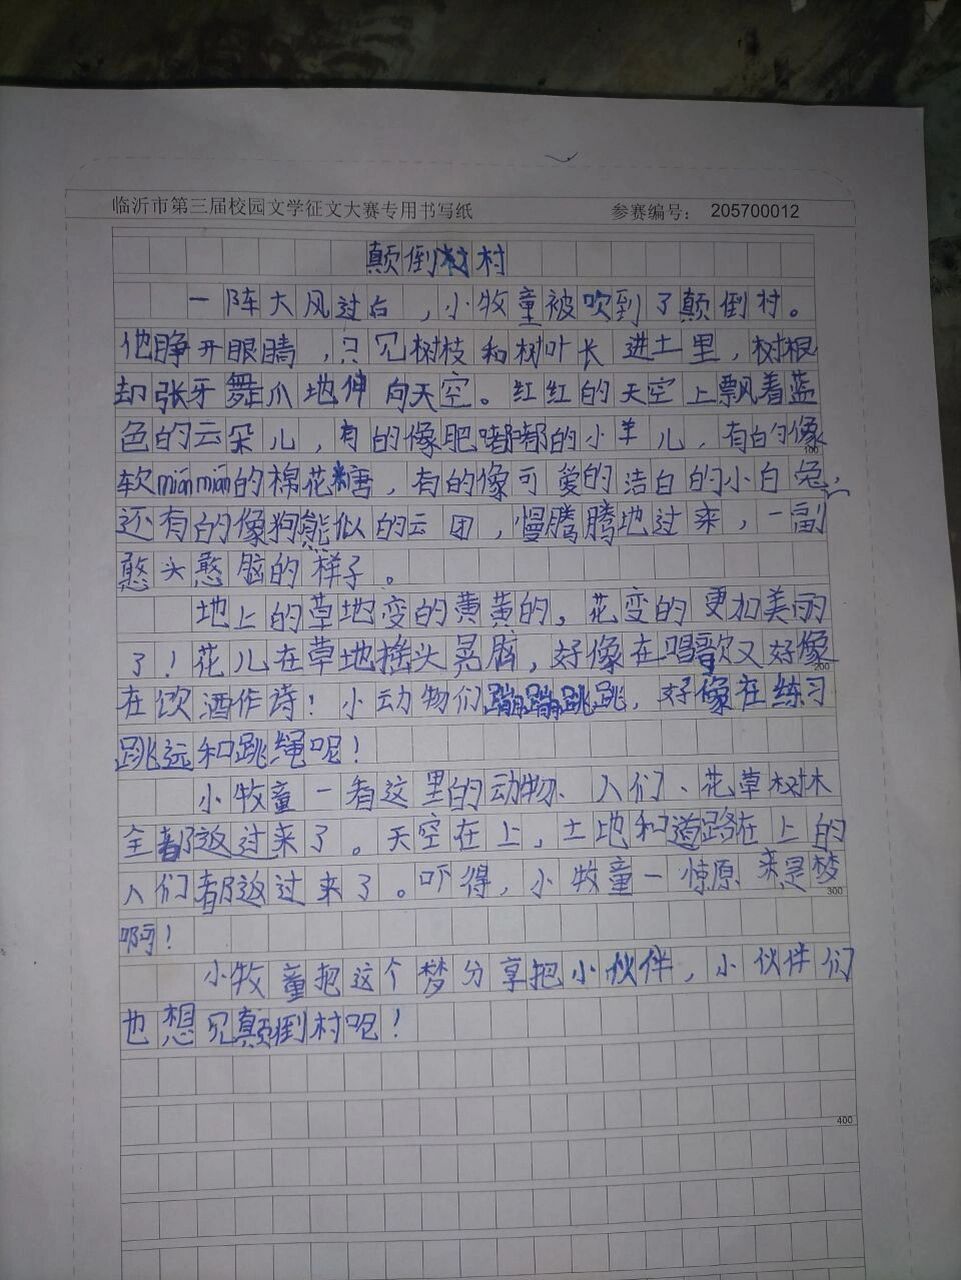 临沂市第三届校园文学征文大赛专用书写纸 参赛编号： 205700012
颠倒村
一阵大风过后，小牧童被吹到了颠倒村。
他睁开眼睛，只见树枝和树叶长进土里，树根
却张牙舞爪地伸向天空。红红的天空上飘着蓝
色的云朵儿，有的像肥嘟嘟的小羊儿，有的像
100
软mián mián的棉花糖，有的像可爱的洁白的小白兔，
还有的像狗熊似的云团，慢腾腾地过来，一副
憨头憨脑的样子。
地上的草地变的黄黄的，花变的更加美丽
了！花儿在草地摇头晃脑，好像在唱歌又好像
200
在饮酒作诗！小动物们蹦蹦跳跳，好像在练习
跳远和跳绳呢！
小牧童一看这里的动物、人们、花草树木
全都返过来了。天空在上，土地和道路在上的
人们都返过来了。吓得，小牧童一惊原来是梦
300
啊！
小牧童把这个梦分享把小伙伴，小伙伴们
也想见颠倒村呢！
400